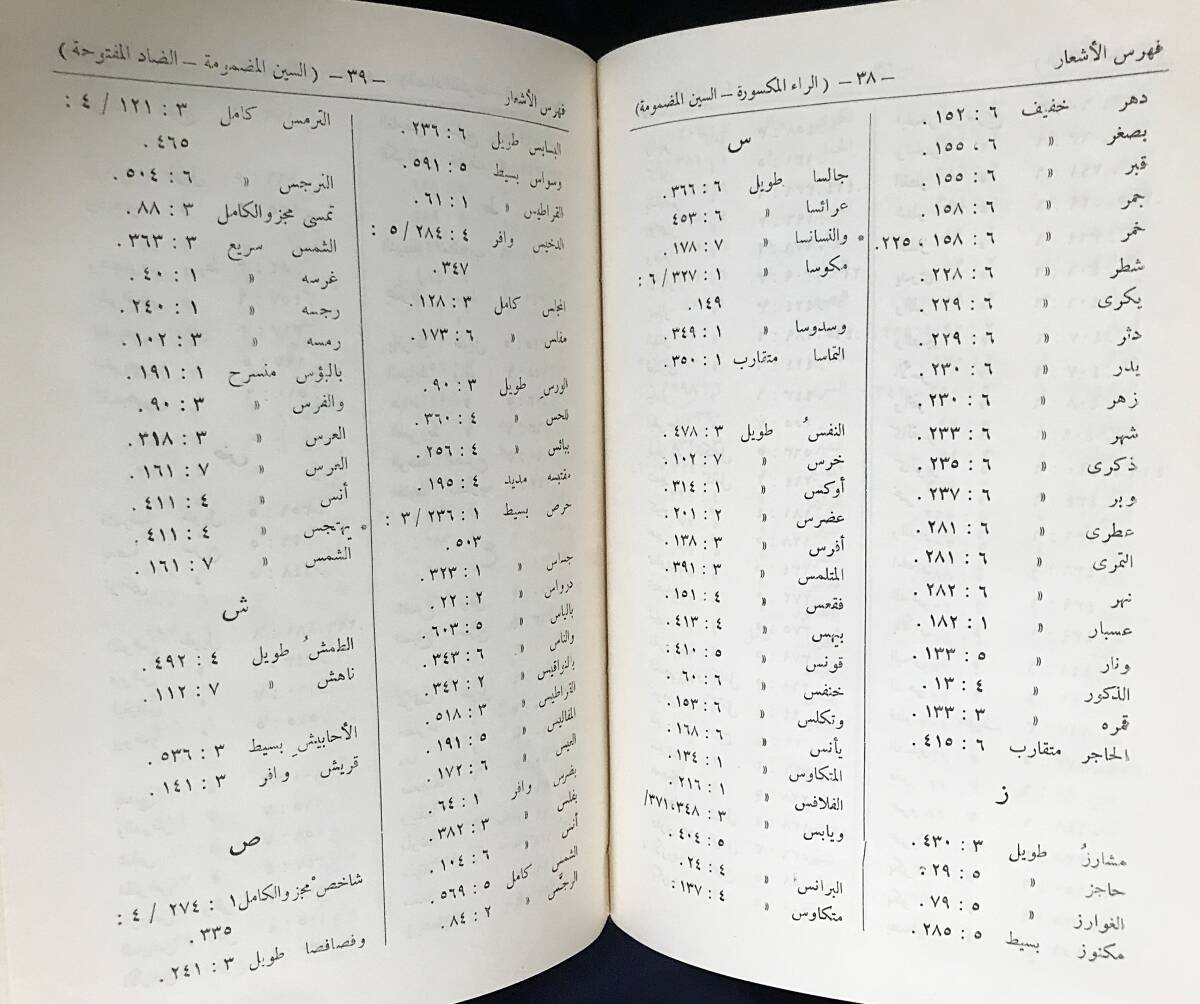 فهرس الأشعار
— ٣٨ — ( الراء المكسورة — السين المضمومة )
دهر خفيف ٦ : ١٥٢ .
بصغر » ٦ ، ١٥٥ .
قبر » ٦ : ١٥٥ .
جمر » ٦ : ١٥٨ .
خمر » ٦ : ١٥٨ ، ٢٢٥ .
شطر » ٦ : ٢٢٨ .
بكرى » ٦ : ٢٢٩ .
دثر » ٦ : ٢٢٩ .
بدر » ٦ : ٢٣٠ .
زهر » ٦ : ٢٣٠ .
شهر » ٦ : ٢٣٣ .
ذكرى » ٦ : ٢٣٥ .
وبر » ٦ : ٢٣٧ .
عطرى » ٦ : ٢٨١ .
التمرى » ٦ : ٢٨١ .
نهر » ٦ : ٢٨٢ .
عسبار » ١ : ١٨٢ .
ونار » ٥ : ١٣٣ .
الذكور » ٤ : ١٣ .
قره » ٣ : ١٣٣ .
الحاجر متقارب ٦ : ٤١٥ .
ز
مشارزُ طويل ٣ : ٤٣٠ .
حاجز » ٥ : ٢٩ .
الغوارز » ٥ : ٧٩ .
مكنوز بسيط ٥ : ٢٨٥ .
س
جالسا طويل ٦ : ٣٦٦ .
عرائسا » ٦ : ٤٥٣
* والنسانسا » ٧ : ١٧٨ .
مكوسا » ١ : ٣٢٧ / ٦ :
١٤٩ .
وسدوسا » ١ : ٣٤٩ .
التماسا متقارب ١ : ٣٥٠ .
النفسُ طويل ٣ : ٤٧٨ .
خرس » ٧ : ١٠٢ .
أوكس » ١ : ٣١٤ .
عضرس » ٢ : ٢٠١ .
أفرس » ٣ : ١٣٨ .
المتلمس » ٣ : ٣٩١ .
فقعس » ٤ : ١٥١ .
بيهس » ٤ : ٤١٣ .
قونس » ٥ : ٤١٠ .
خنفس » ٦ : ٦٠ .
وتكلس » ٦ : ١٥٣ .
يأنس » ٦ : ١٦٨ .
المتكاوس » ١ : ١٣٤ .
الفلافس » ١ : ٢١٦ .
ويابس » ٣ : ٣٤٨ ، ٣٧١ /
٥ : ٤٠٤ .
البرانس » ٤ : ٢٤ .
متكاوس » ٤ : ١٣٧ .
فهرس الأشعار
— ٣٩ — ( السين المضمومة — الضاد المفتوحة )
البسابس طويل ٦ : ٢٣٦ .
وسواس بسيط ٥ : ٥٩١ .
القراطيس » ١ : ٦١ .
الدخيس وافر ٤ : ٢٨٤ / ٥ :
٣٤٧ .
المجلس كامل ٣ : ١٢٨ .
مفلس » ٦ : ١٧٣ .
الورسِ طويل ٣ : ٩٠ .
للحس » ٤ : ٣٦٠ .
ببائس » ٤ : ٢٥٦ .
مديد ٤ : ١٩٥ .
حرس بسيط ١ : ٢٣٦ / ٣ :
٥٠٣ .
جساس » ١ : ٣٢٣ .
درواس » ٢ : ٢٢ .
بالياس » ٥ : ٦٠٣ .
والناس » ٦ : ٣٤٣ .
بالنواقيس » ٢ : ٣٤٢ .
القراطيس » ٣ : ٥١٨ .
المفاليس » ٥ : ١٩١ .
العيس » ٦ : ١٧٢ .
بضرس وافر ١ : ٦٤ .
بفلس » ٣ : ٣٨٢ .
أنس » ٦ : ١٠٤ .
الشمس كامل ٥ : ٥٦٩ .
الرجس » ٢ : ٨٤ .
الترمس كامل ٣ : ١٢١ / ٤ :
٤٦٥ .
النرجس » ٦ : ٥٠٤ .
تمسى مجزو الكامل ٣ : ٨٨ .
الشمس سريع ٣ : ٣٦٣ .
غرسه » ١ : ٤٠ .
رجسه » ١ : ٢٤٠ .
رمسه » ٣ : ١٠٢ .
بالبؤس منسرح ١ : ١٩١ .
والفرس » ٣ : ٩٠ .
العرس » ٣ : ٣١٨ .
العرس » ٧ : ١٦١ .
أنس » ٤ : ٤١١ .
* يهتجس » ٤ : ٤١١ .
الشمس » ٧ : ١٦١ .
ش
الطمشُ طويل ٤ : ٤٩٢ .
ناهش » ٧ : ١١٢ .
الأحابيشِ بسيط ٣ : ٥٣٦ .
قريش وافر ٣ : ١٤١ .
ص
شاخصْ مجزو الكامل ١ : ٢٧٤ / ٤ :
٣٣٥ .
وفصافصا طويل ٣ : ٢٤١ .